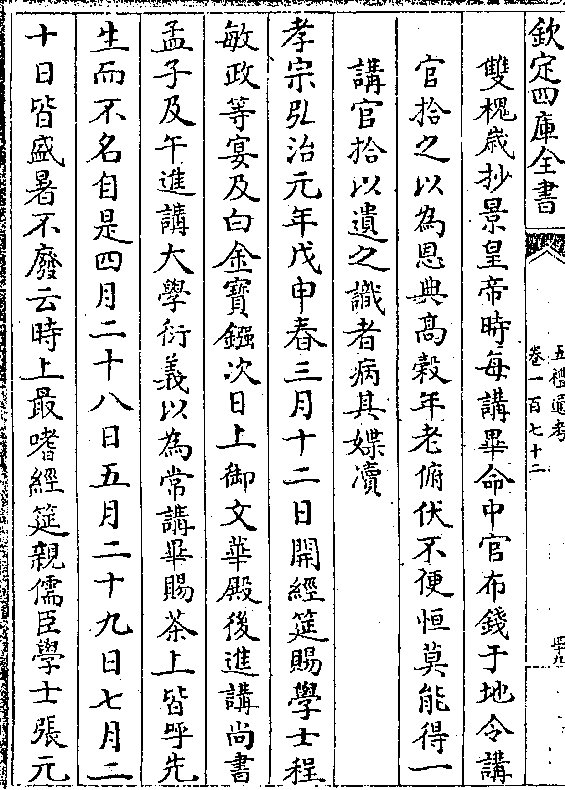 欽定四庫全書
五禮通考
卷一百七十二
雙槐歲抄景皇帝時每講畢命中官布錢于地令講
官拾之以為恩典高穀年老俯伏不便恒莫能得一
講官拾以遺之識者病其媟瀆
孝宗弘治元年戊申春三月十二日開經筵賜學士程
敏政等宴及白金寶鏹次日上御文華殿後進講尚書
孟子及午進講大學衍義以為常講畢賜茶上皆呼先
生而不名自是四月二十八日五月二十九日七月二
十日皆盛暑不廢云時上最嗜經筵親儒臣學士張元